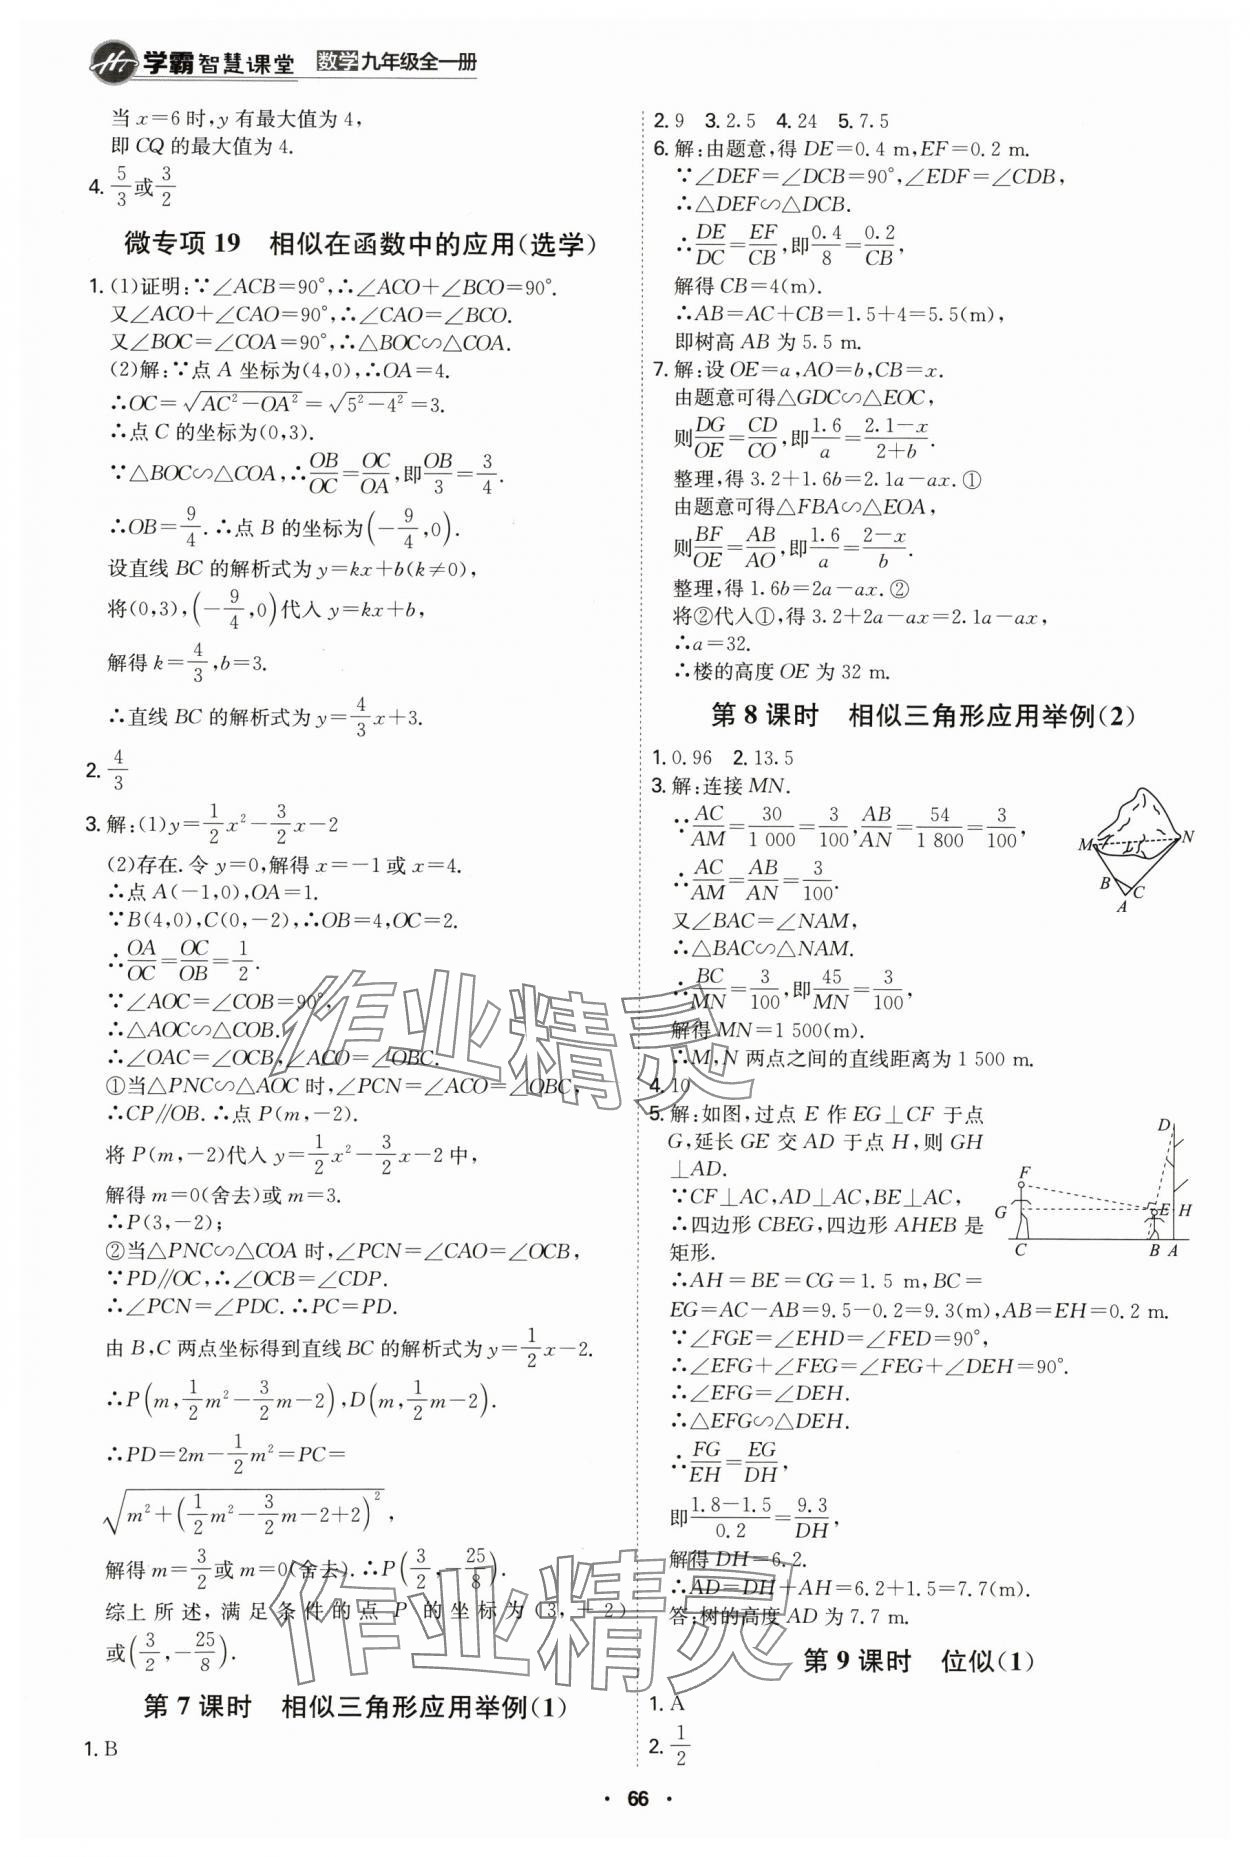 学霸智慧课堂 数学九年级全一册
当 x=6 时,y 有最大值为 4,
即 CQ 的最大值为 4.
4. 5/3 或 3/2
微专项 19 相似在函数中的应用(选学)
1. (1)证明:∵∠ACB=90°,∴∠ACO+∠BCO=90°.
又∠ACO+∠CAO=90°,∴∠CAO=∠BCO.
又∠BOC=∠COA=90°,∴△BOC∽△COA.
(2)解:∵点 A 坐标为(4,0),∴OA=4.
∴OC=√(AC²-OA²)=√(5²-4²)=3.
∴点 C 的坐标为(0,3).
∵△BOC∽△COA,∴OB/OC=OC/OA,即OB/3=3/4.
∴OB=9/4.∴点 B 的坐标为(-9/4,0).
设直线 BC 的解析式为 y=kx+b(k≠0),
将(0,3),(-9/4,0)代入 y=kx+b,
解得 k=4/3,b=3.
∴直线 BC 的解析式为 y=4/3x+3.
2. 4/3
3. 解:(1)y=1/2x²-3/2x-2
(2)存在.令 y=0,解得 x=-1 或 x=4.
∴点 A(-1,0),OA=1.
∵B(4,0),C(0,-2),∴OB=4,OC=2.
∴OA/OC=OC/OB=1/2.
∵∠AOC=∠COB=90°,
∴△AOC∽△COB.
∴∠OAC=∠OCB,∠ACO=∠OBC.
①当△PNC∽△AOC 时,∠PCN=∠ACO=∠OBC,
∴CP∥OB.∴点 P(m,-2).
将 P(m,-2)代入 y=1/2x²-3/2x-2 中,
解得 m=0(舍去)或 m=3.
∴P(3,-2);
②当△PNC∽△COA 时,∠PCN=∠CAO=∠OCB,
∵PD∥OC,∴∠OCB=∠CDP.
∴∠PCN=∠PDC.∴PC=PD.
由 B,C 两点坐标得到直线 BC 的解析式为 y=1/2x-2.
∴P(m,1/2m²-3/2m-2),D(m,1/2m-2).
∴PD=2m-1/2m²=PC=
√(m²+(1/2m²-3/2m-2+2)²),
解得 m=3/2或 m=0(舍去).∴P(3/2,-25/8).
综上所述,满足条件的点 P 的坐标为(3,-2)
或(3/2,-25/8).
第 7 课时 相似三角形应用举例(1)
1. B
2. 9 3. 2.5 4. 24 5. 7.5
6. 解:由题意,得 DE=0.4 m,EF=0.2 m.
∵∠DEF=∠DCB=90°,∠EDF=∠CDB,
∴△DEF∽△DCB.
∴DE/DC=EF/CB,即0.4/8=0.2/CB,
解得 CB=4(m).
∴AB=AC+CB=1.5+4=5.5(m),
即树高 AB 为 5.5 m.
7. 解:设 OE=a,AO=b,CB=x.
由题意可得△GDC∽△EOC,
则DG/OE=CD/CO,即1.6/a=2.1-x/2+b.
整理,得 3.2+1.6b=2.1a-ax.①
由题意可得△FBA∽△EOA,
则BF/OE=AB/AO,即1.6/a=2-x/b.
整理,得 1.6b=2a-ax.②
将②代入①,得 3.2+2a-ax=2.1a-ax,
∴a=32.
∴楼的高度 OE 为 32 m.
第 8 课时 相似三角形应用举例(2)
1. 0.96 2. 13.5
3. 解:连接 MN.
∵AC/AM=30/1 000=3/100,AB/AN=54/1 800=3/100,
∴AC/AM=AB/AN=3/100.
又∠BAC=∠NAM,
∴△BAC∽△NAM.
∴BC/MN=3/100,即45/MN=3/100,
解得 MN=1 500(m).
∴M,N 两点之间的直线距离为 1 500 m.
M N B C A
4. 10
5. 解:如图,过点 E 作 EG⊥CF 于点
G,延长 GE 交 AD 于点 H,则 GH
⊥AD.
∵CF⊥AC,AD⊥AC,BE⊥AC,
∴四边形 CBEG,四边形 AHEB 是
矩形.
D F G E H C B A
∴AH=BE=CG=1.5 m,BC=
EG=AC-AB=9.5-0.2=9.3(m),AB=EH=0.2 m.
∵∠FGE=∠EHD=∠FED=90°,
∴∠EFG+∠FEG=∠FEG+∠DEH=90°.
∴∠EFG=∠DEH.
∴△EFG∽△DEH.
∴FG/EH=EG/DH,
即1.8-1.5/0.2=9.3/DH,
解得 DH=6.2.
∴AD=DH+AH=6.2+1.5=7.7(m).
答:树的高度 AD 为 7.7 m.
第 9 课时 位似(1)
1. A
2. 1/2
作业精灵
作业精灵
· 66 ·